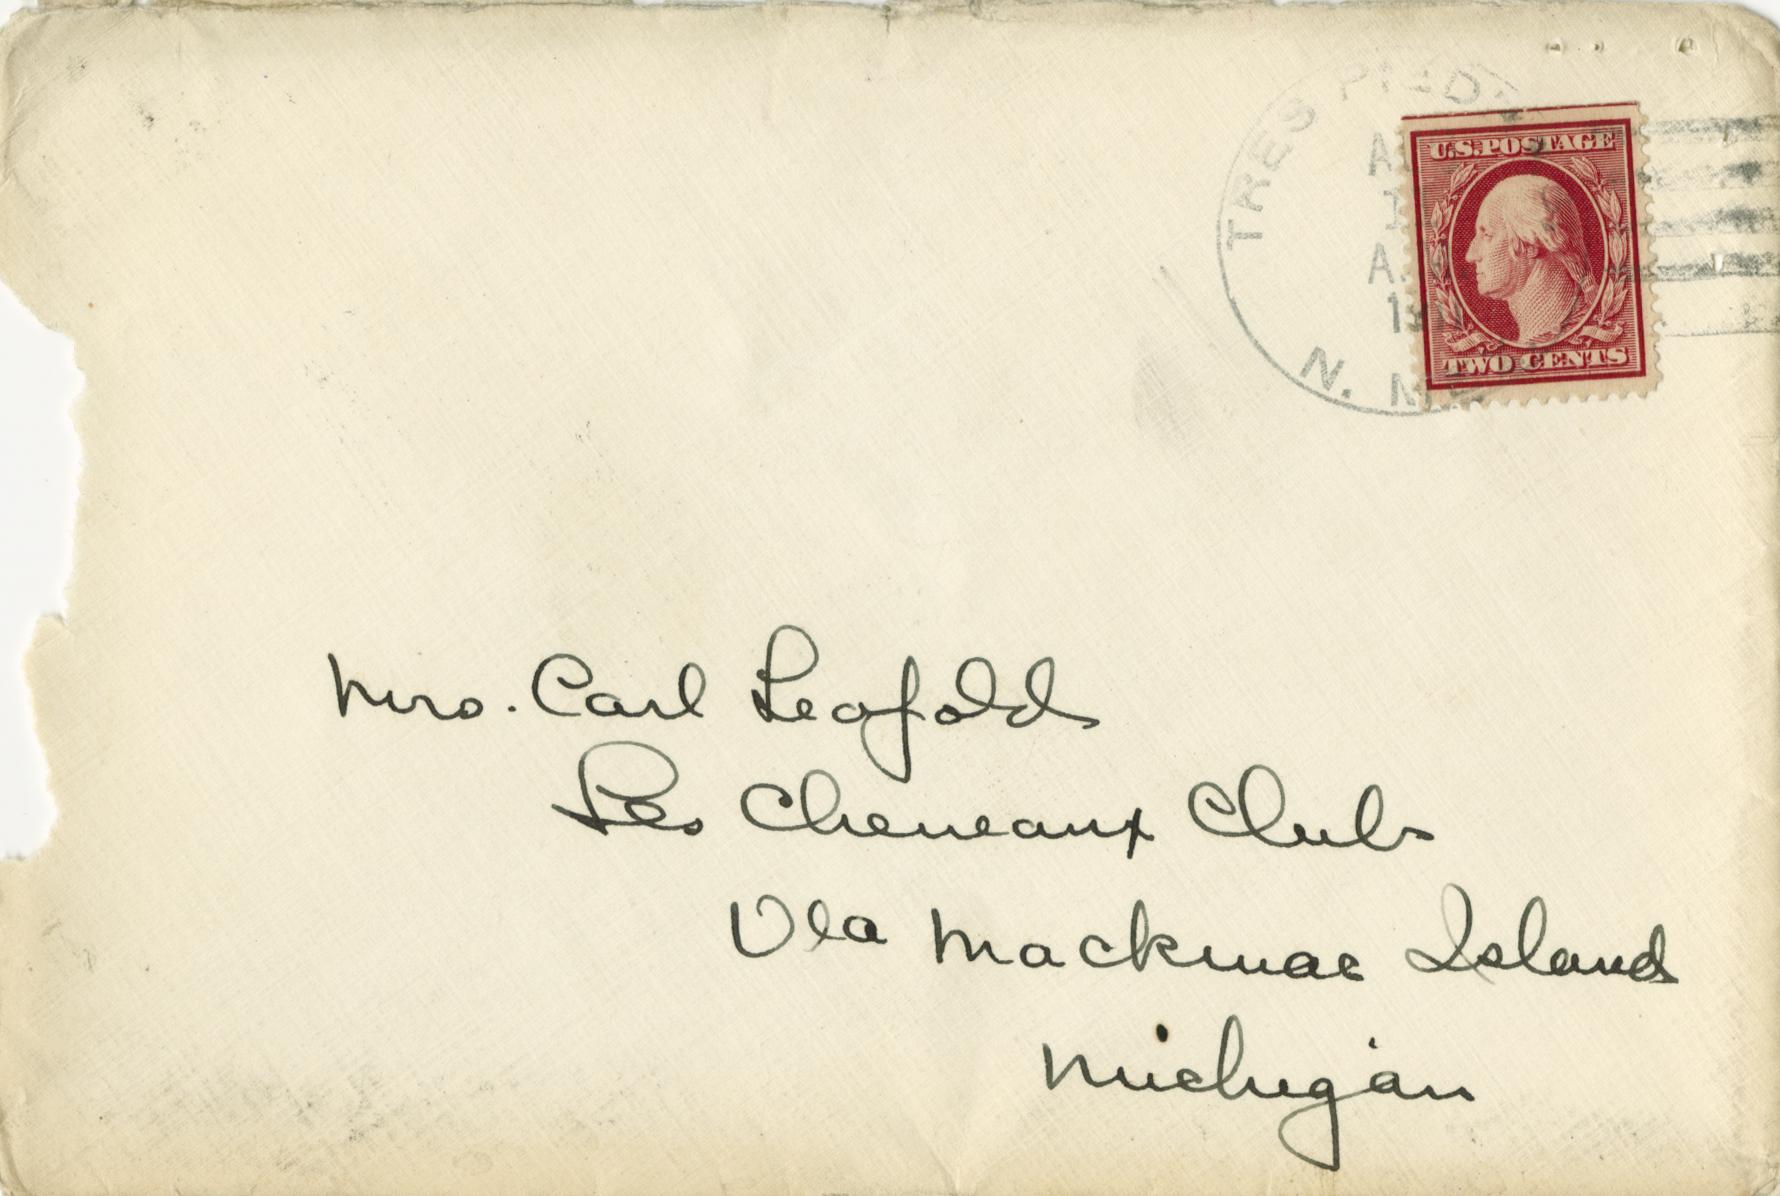 TRES PIED
A
A.
N. MEX
U.S. POSTAGE
TWO CENTS
Mrs. Carl Leopold
Les Cheneaux Club
Via Mackinac Island
Michigan